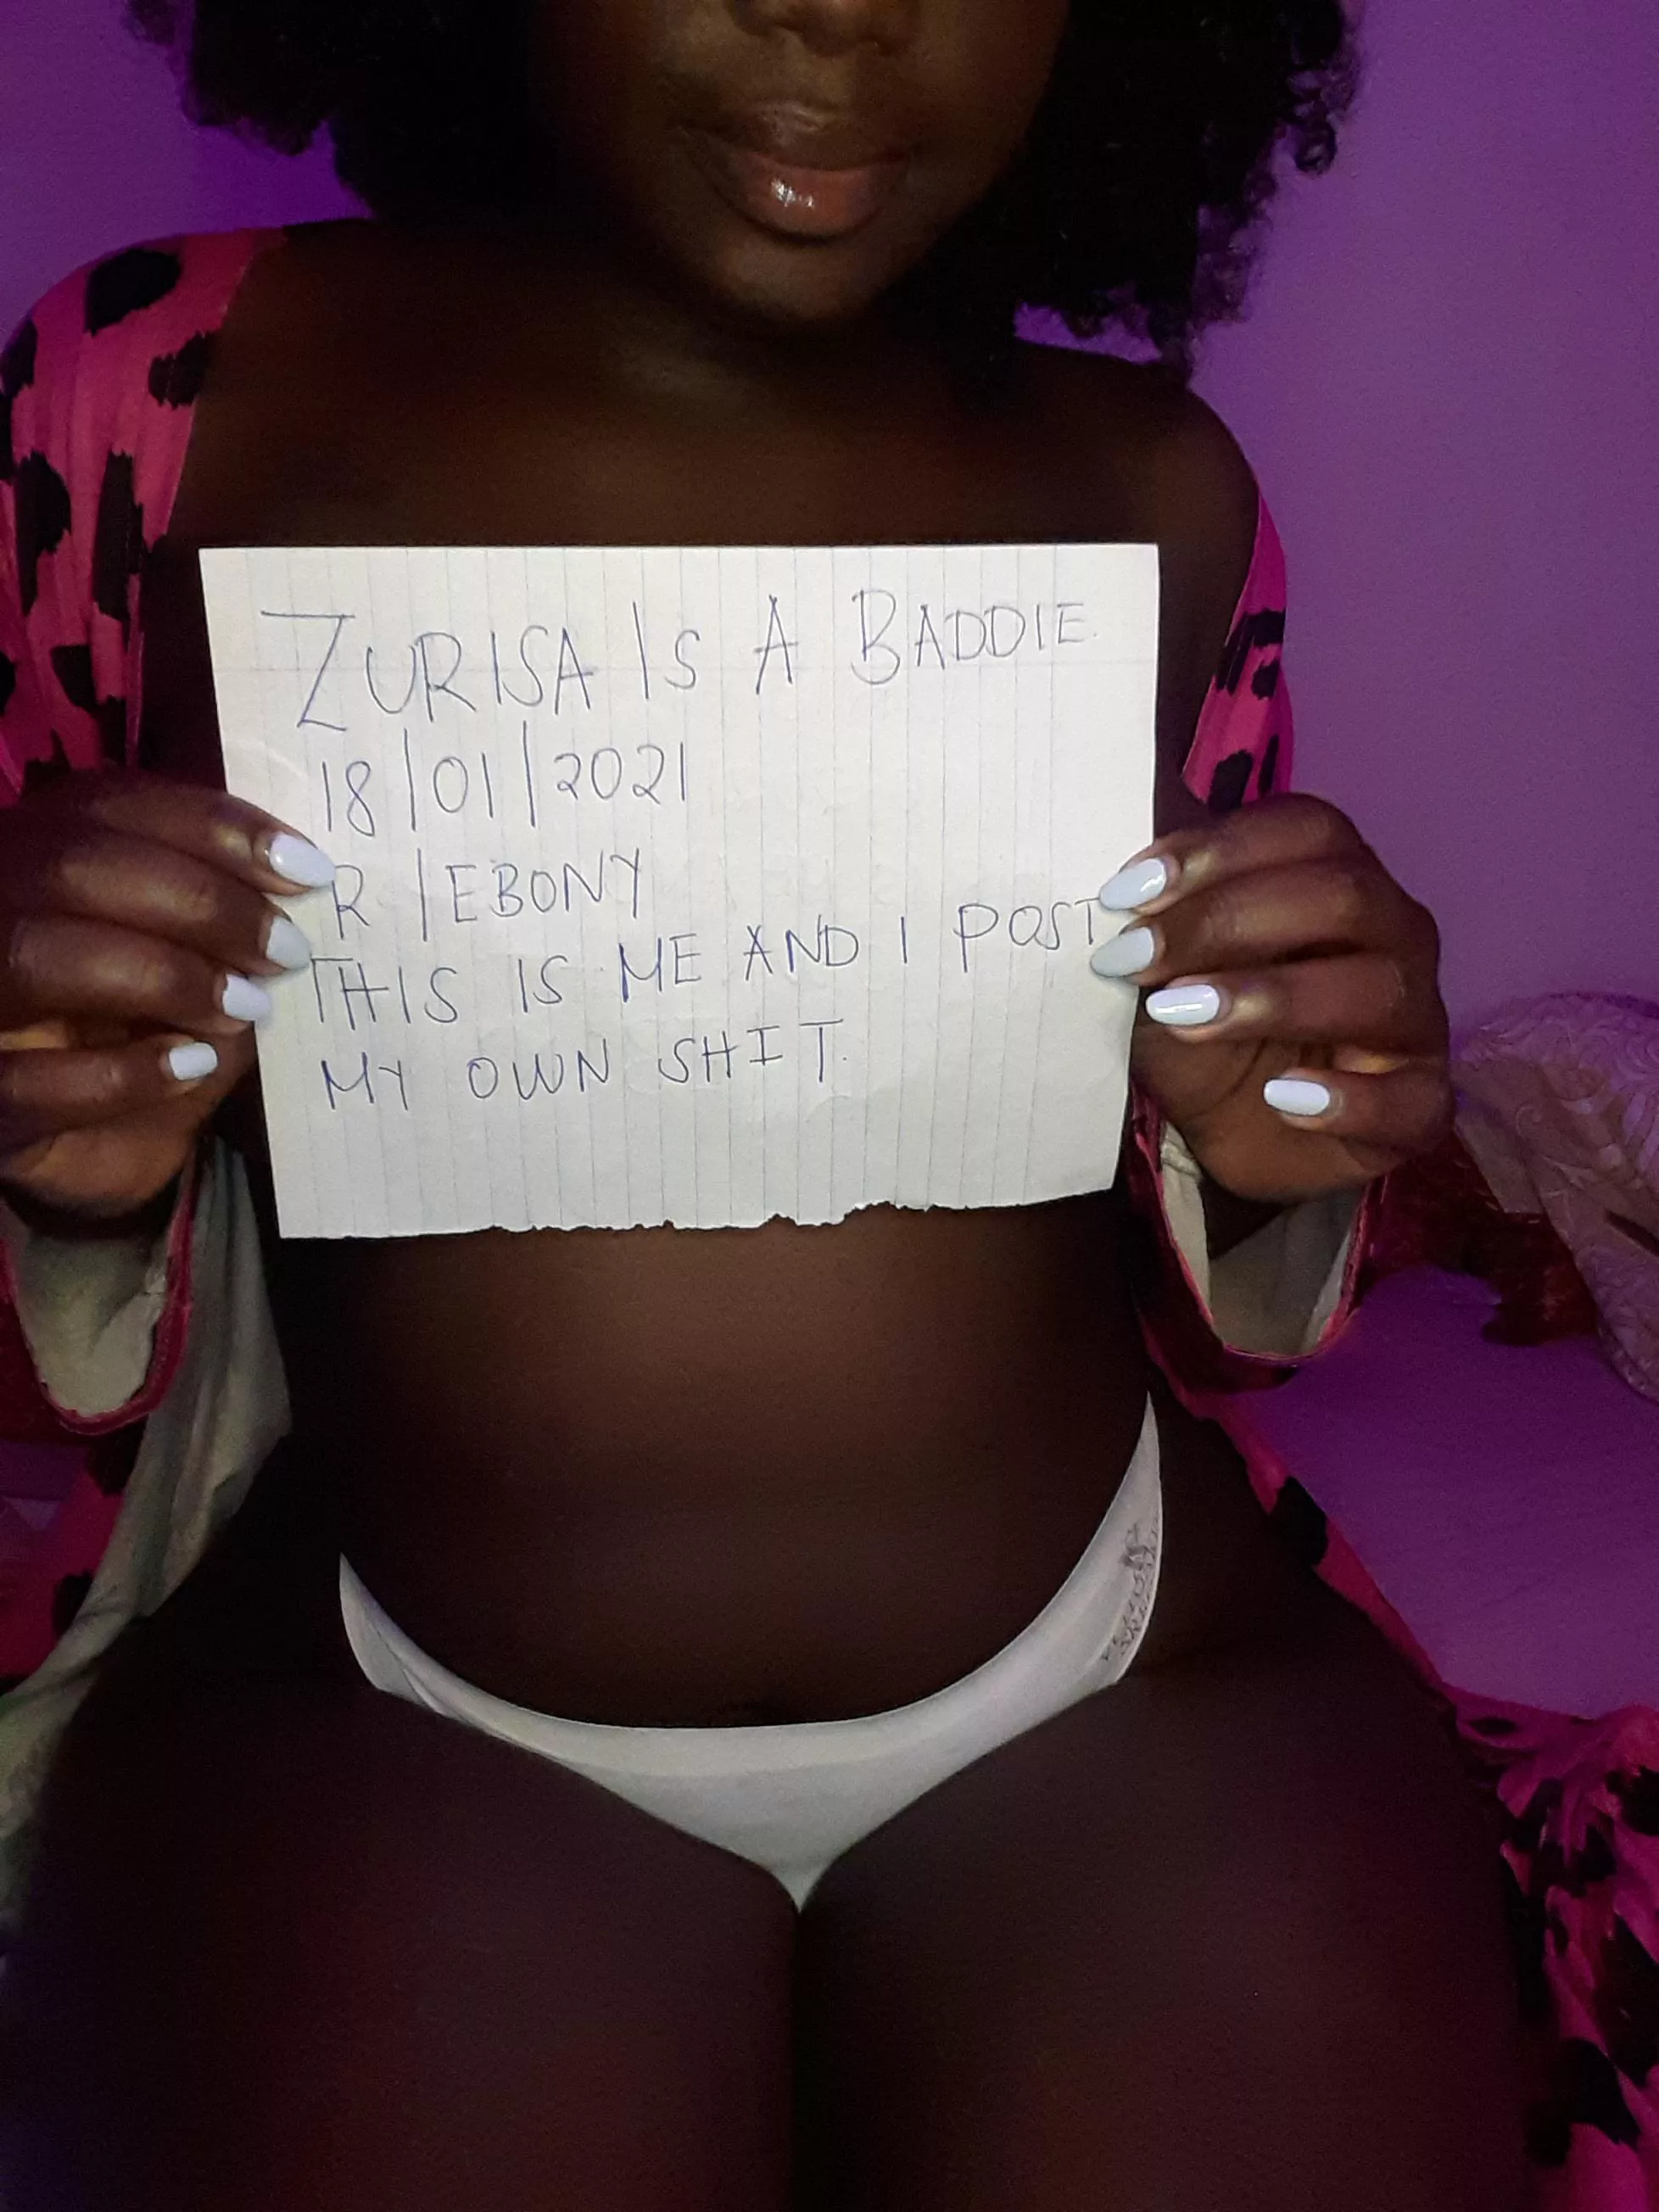 ZURISA IS A BADDIE.
18/01/2021
R/EBONY
THIS IS ME AND I POST
MY OWN SHIT.